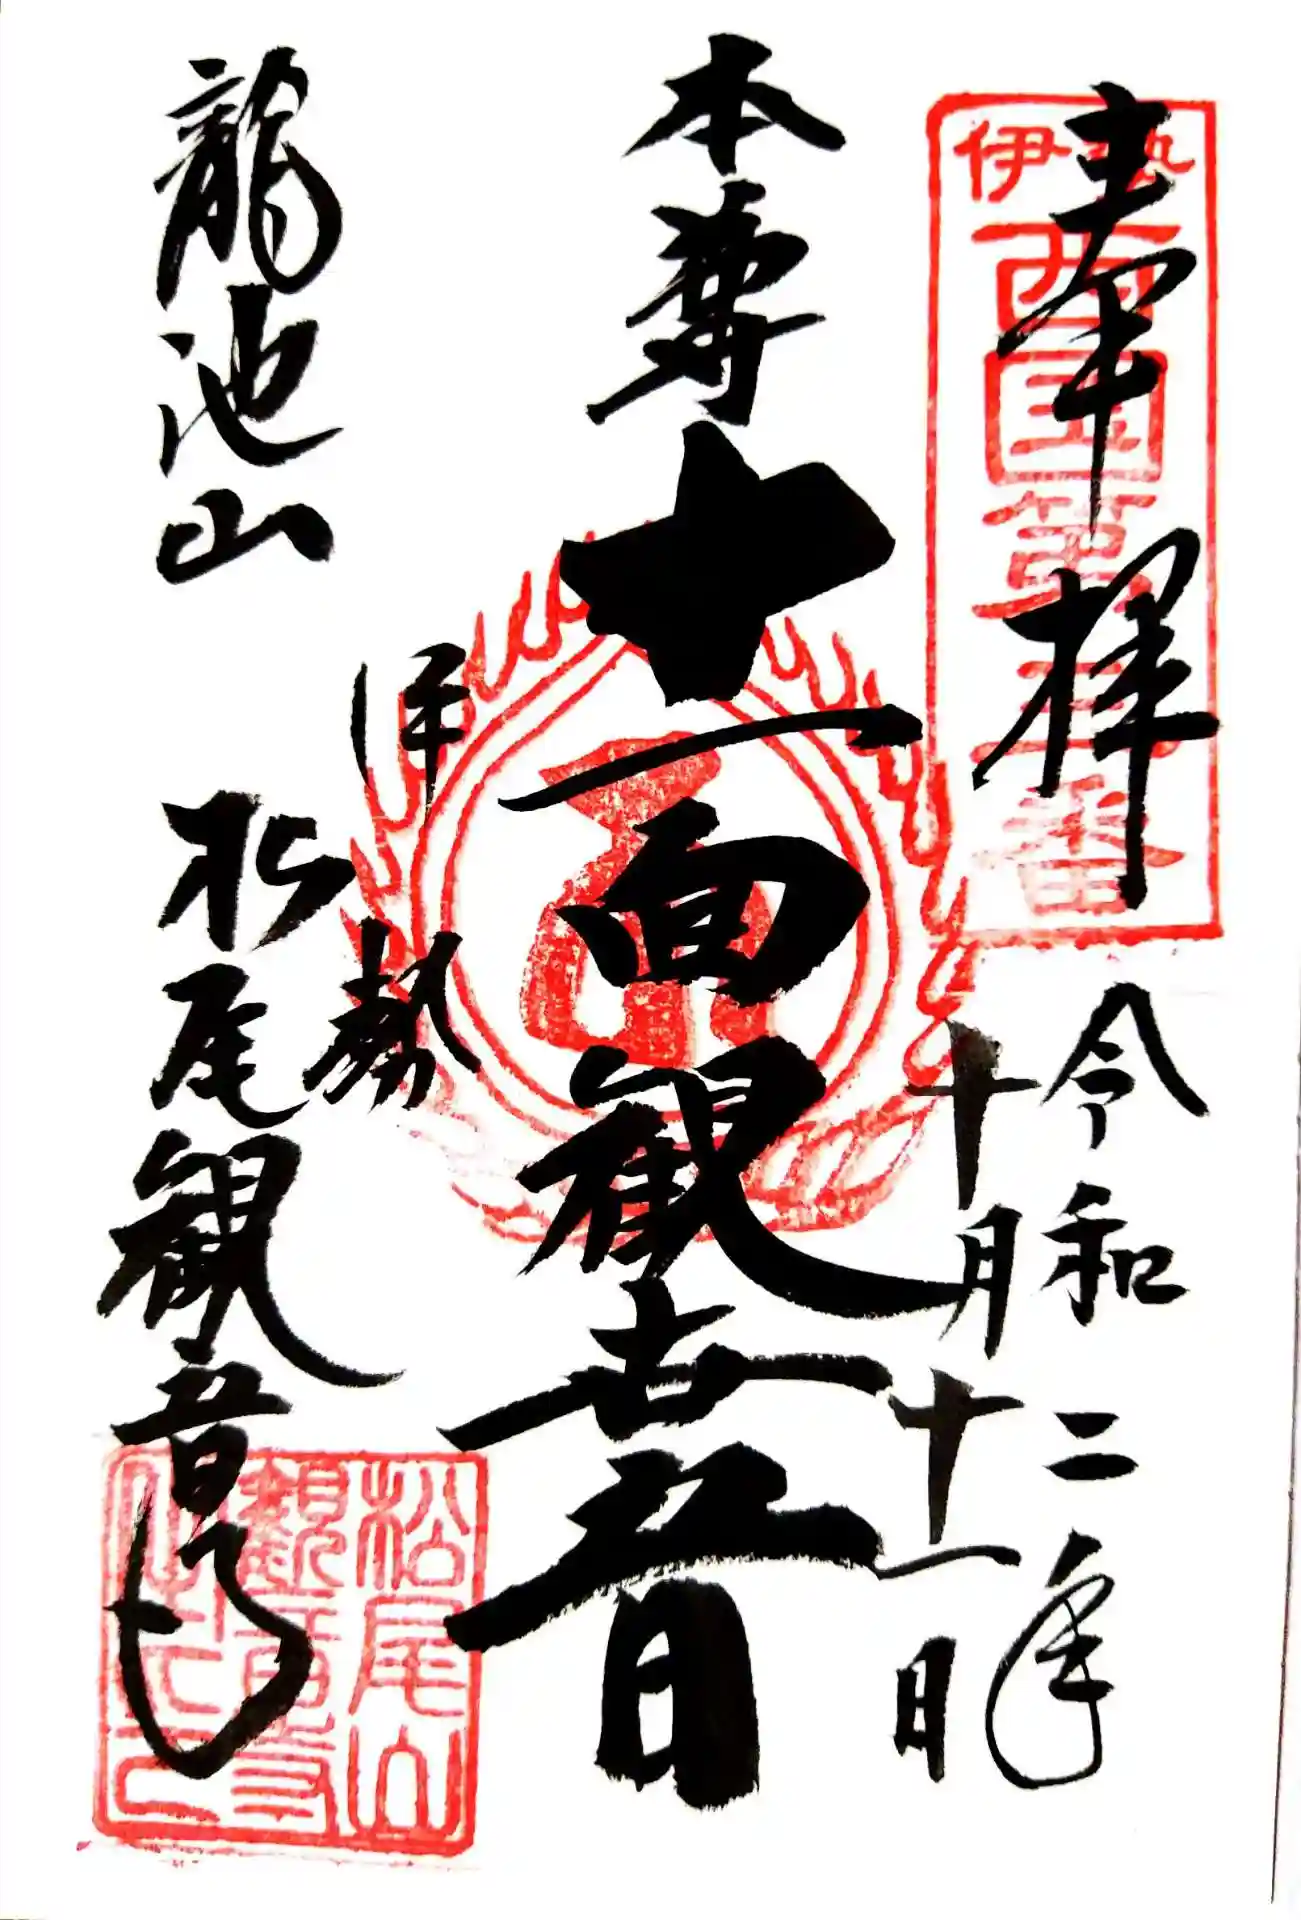 奉拝
伊勢西国第三番
令和二年
十月十一日
本尊十一面観世音
伊勢
龍池山
松尾観音寺
松尾山
観音寺